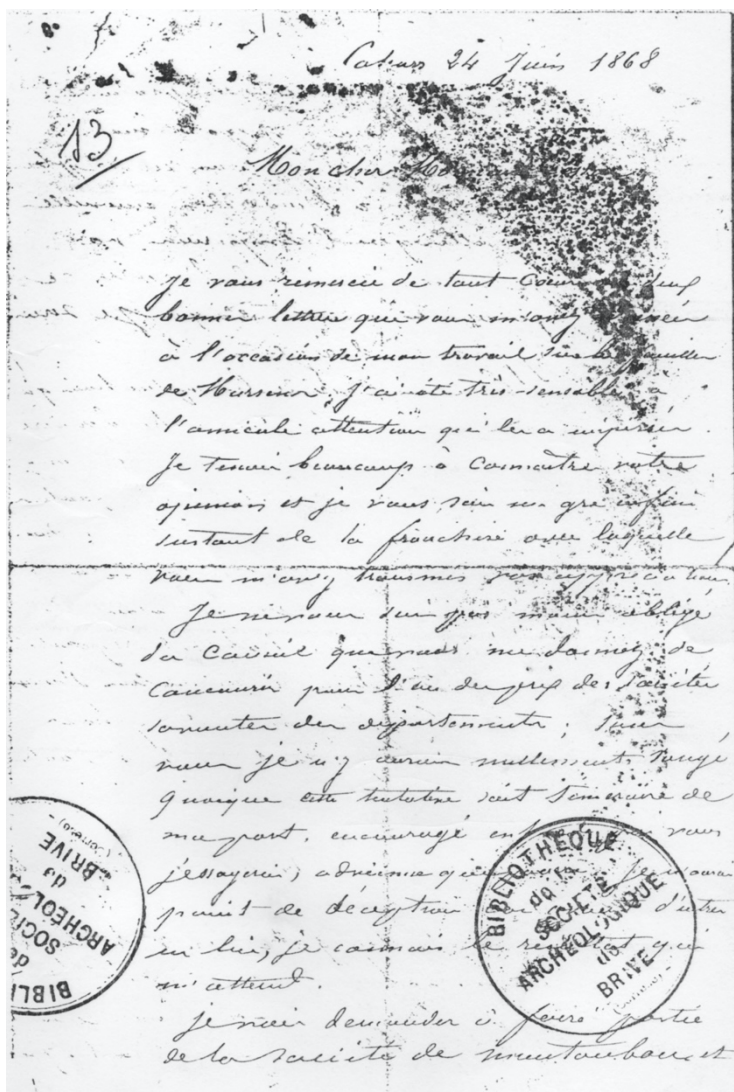 Cahors 24 Juin 1868
13
Mon cher
Je vous remercie de tout Coeur deux
bonnes lettres que vous m'avez
à l'occasion de mon travail sur le
de J'ai été très-sensible à
l'amicale attention qui les a inspirées.
Je tenais beaucoup à Connaître votre
opinion et je vous sais un gré infini
surtout de la franchise avec laquelle
vous m'avez transmis vos appréciations
Je ne vous suis pas moins obligé
du Conseil que vous me donnez de
Concourir pour l'un des prix des Sociétés
savantes des départements; sans
vous je n'y aurais nullement songé
quoique cette tentative soit téméraire de
ma part, encouragé par vous
j'essayerai,
point de déception d'entrer
en lice, je connais le résultat qui
m'attend.
Je vais demander à faire partie
de la Société de Montauban et
BIBLIOTHÈQUE
de la
SOCIÉTÉ
ARCHÉOLOGIQUE
de
BRIVE
(Corrèze)
BIBLI
de
SOCI
ARCHÉOLO
de
BRIVE
(Corrèze)